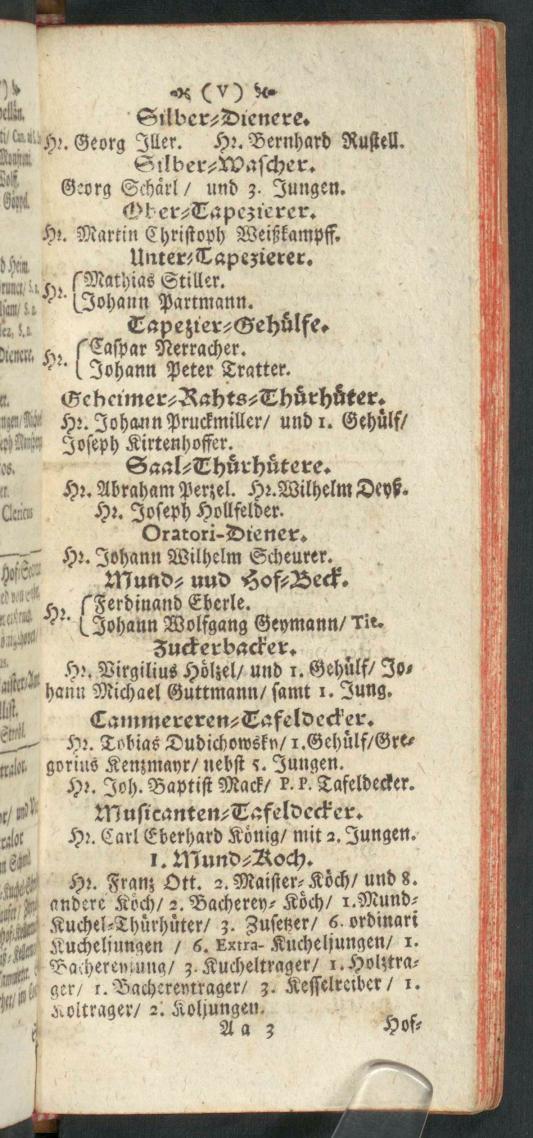 (V)
Silber-Dienere.
Hr. Georg Iller. Hr. Bernhard Rustell.
Silber-Wascher.
Georg Schärl / und 3. Jungen.
Ober-Tapezierer.
Hr. Martin Christoph Weißkampff.
Unter-Tapezierer.
Hr. { Mathias Stiller.
Johann Partmann.
Tapezier-Gehülfe.
Hr. { Caspar Nerracher.
Johann Peter Tratter.
Geheimer-Rahts-Thürhüter.
Hr. Johann Pruckmiller/ und 1. Gehülf/
Joseph Kirtenhoffer.
Saal-Thürhütere.
Hr. Abraham Perzel. Hr. Wilhelm Deyß.
Hr. Joseph Hollfelder.
Oratori-Diener.
Hr. Johann Wilhelm Scheurer.
Mund- uud Hof-Beck.
Hr. { Ferdinand Eberle.
Johann Wolfgang Geymann/ Tit.
Zuckerbacker.
Hr. Virgilius Hölzel/ und 1. Gehülf/ Jo-
hann Michael Guttmann/ samt 1. Jung.
Cammereren-Tafeldecker.
Hr. Tobias Dudichowsky/ 1. Gehülf/Gre-
gorius Kenzmayr/ nebst 5. Jungen.
Hr. Joh. Baptist Mack/ P. P. Tafeldecker.
Musicanten-Tafeldecker.
Hr. Carl Eberhard König/ mit 2. Jungen.
1. Mund-Koch.
Hr. Franz Ott. 2. Maister-Köch/ und 8.
andere Köch/ 2. Bacherey-Köch/ 1. Mund-
Kuchel-Thürhüter/ 3. Zusetzer/ 6. ordinari
Kucheljungen / 6. Extra-Kucheljungen/ 1.
Bachereyjung/ 3. Kucheltrager/ 1. Holztra-
ger/ 1. Bachereytrager/ 3. Kesselreiber / 1.
Koltrager/ 2. Koljungen.
Aa 3 Hof-